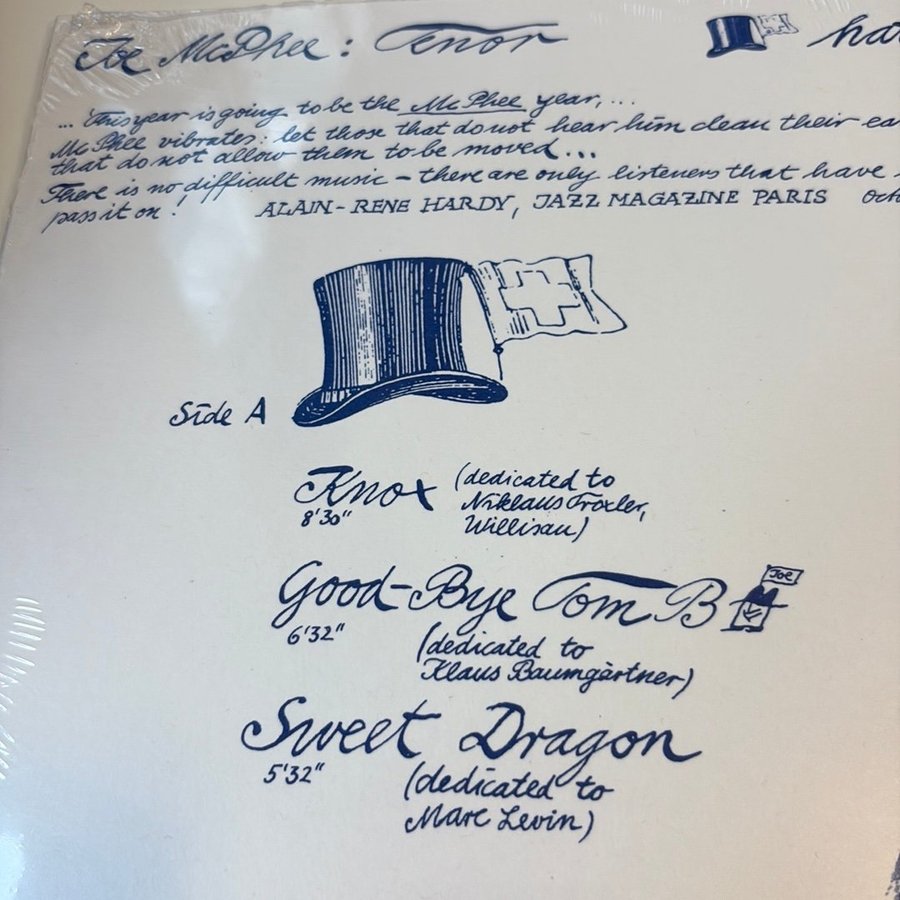 Joe McPhee: Tenor
... This year is going to be the McPhee year, ...
McPhee vibrates: let those that do not hear him clean their
that do not allow them to be moved ...
There is no difficult music - there are only listeners that have
pass it on! ALAIN-RENE HARDY, JAZZ MAGAZINE PARIS
Side A
Knox (dedicated to
8'30" Niklaus Troxler,
Willisau)
Good-Bye Tom B
Joe
6'32" (dedicated to
Klaus Baumgärtner)
Sweet Dragon
5'32" (dedicated to
Marc Levin)